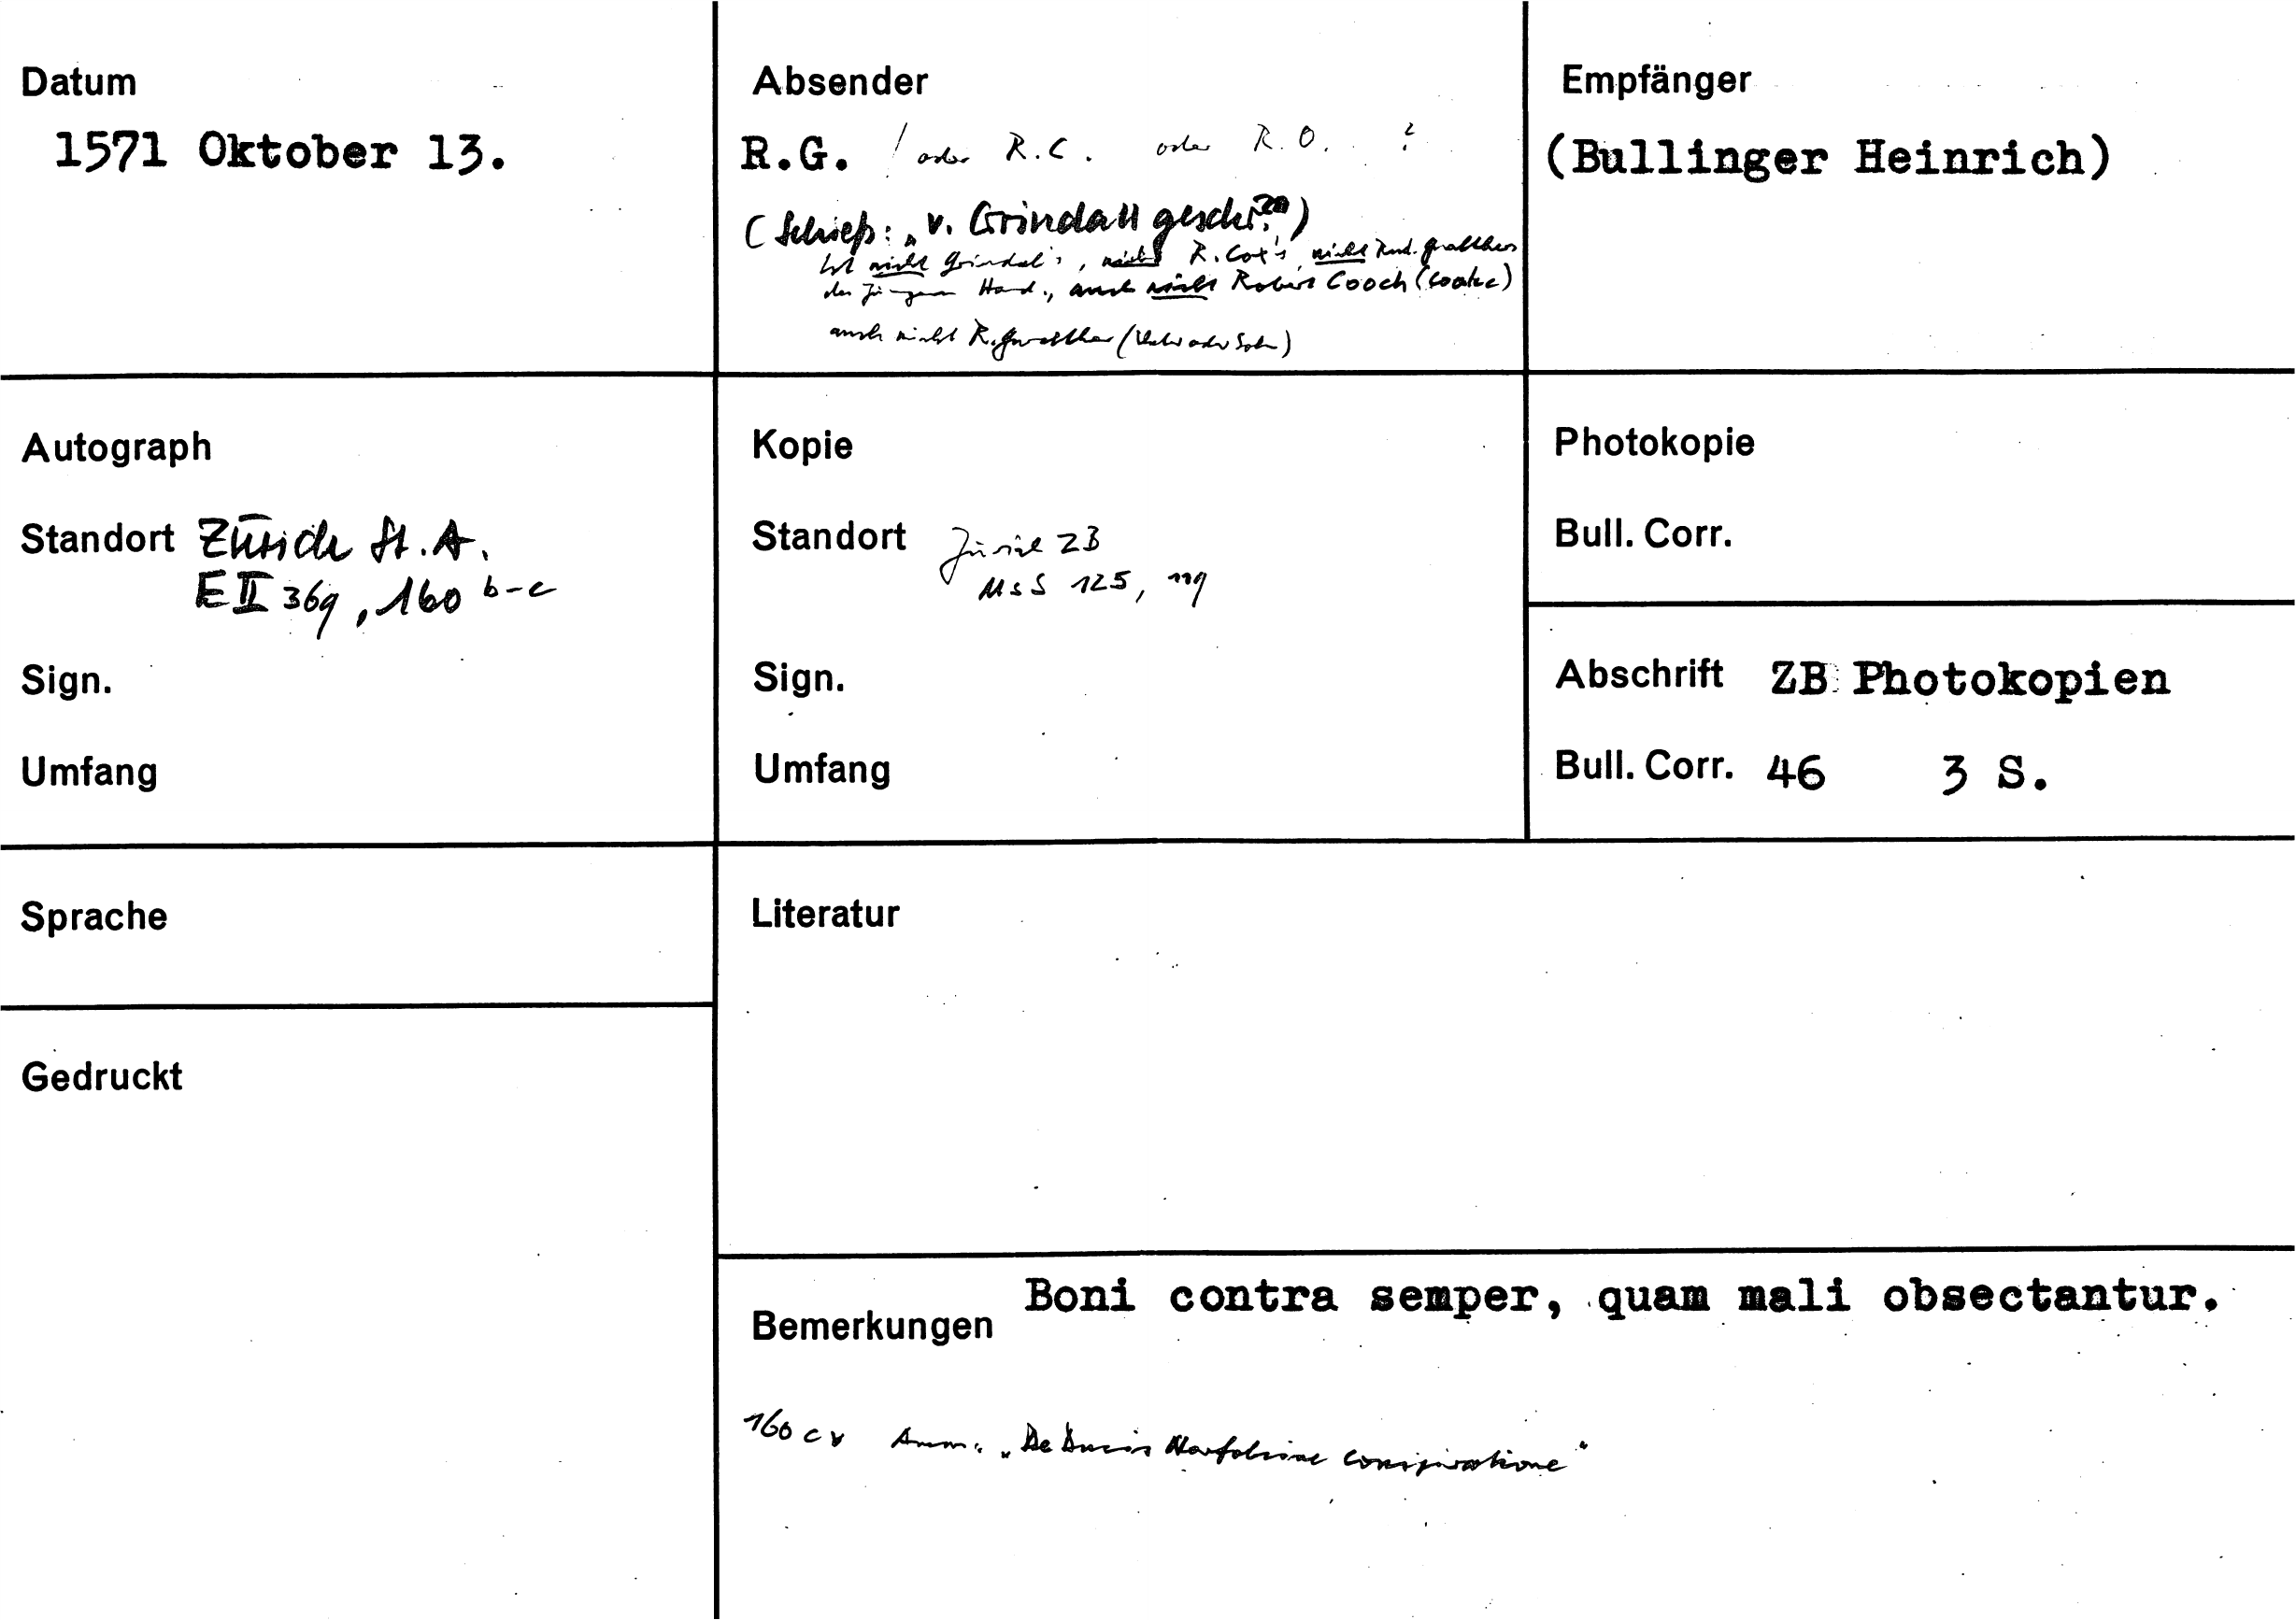 Datum
1571 Oktober 13.
Absender
R.G. / oder R.C. oder R.O. ?
(Schieß: „v. Grindall geschr.")
Ist nicht Grindal's, nicht R. Cox's, nicht Rud. Gwalthers
des Jüngeren Hand., auch nicht Robert Cooch (Cooke)
auch nicht R. Gwalther (Vater oder Sohn)
Empfänger
(Bullinger Heinrich)
Autograph
Standort Zürich St.A.
E II 369, 160 b-c
Sign.
Umfang
Kopie
Standort Zürich ZB
Ms S 125, 119
Sign.
Umfang
Photokopie
Bull. Corr.
Abschrift ZB Photokopien
Bull. Corr. 46 3 S.
Sprache
Gedruckt
Literatur
Bemerkungen Boni contra semper, quam mali obsectantur.
160 c v Anm: „De Ducis Norfolciae conspiratione"